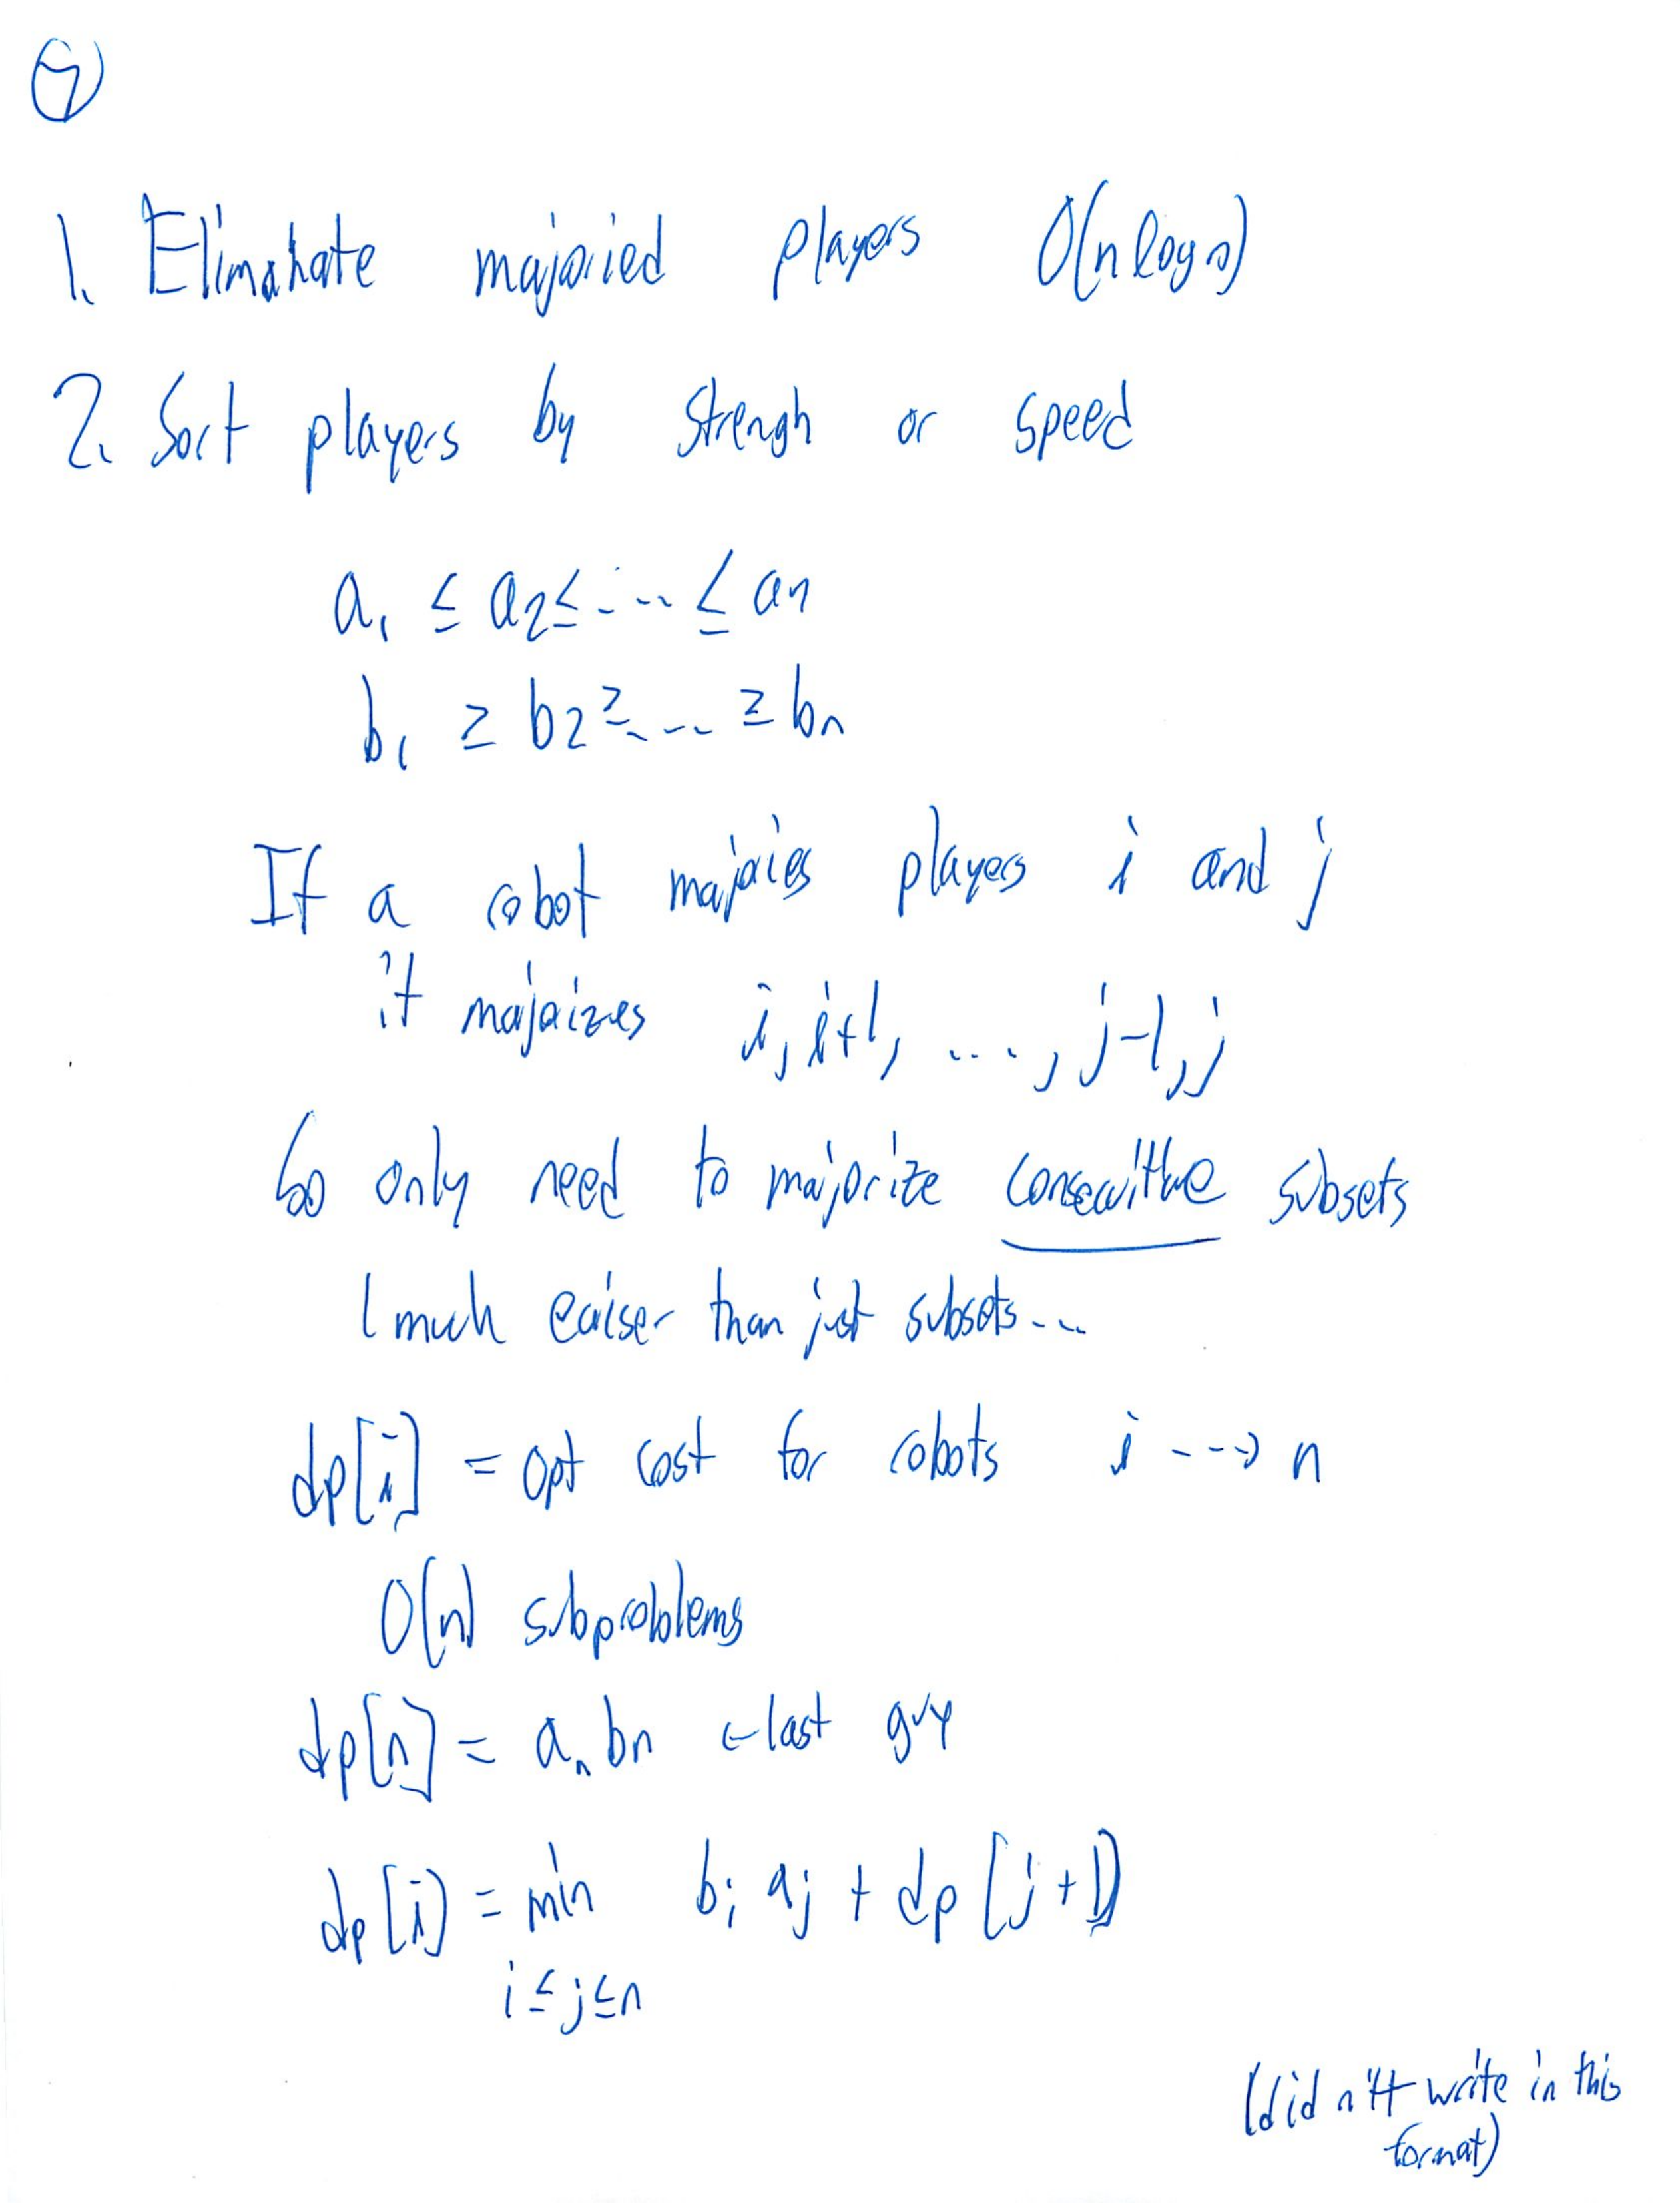 7
1. Eliminate majoried players O(n log n)
2. Sort players by strengh or speed
a1 ≤ a2 ≤ ... ≤ an
b1 ≥ b2 ≥ ... ≥ bn
If a robot majories players i and j
it majoizes i, i+1, ..., j-1, j
So only need to majorize consecuitive subsets
(much eaiser than just subsets...
dp[i] = opt cost for robots i ---> n
O(n) subproblems
dp[n] = an bn ← last guy
dp[i] = min bi aj + dp[j+1]
i ≤ j ≤ n
(did n't write in this
format)